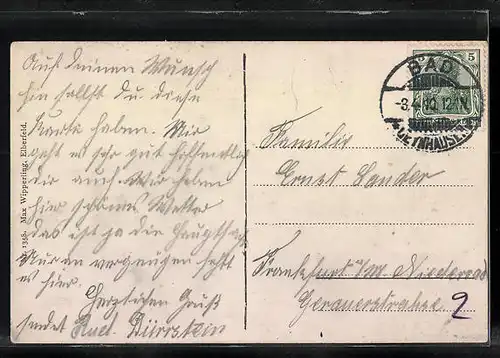 Auf deinen Wunsch
hin sollst du diese
Karte haben. Mir
geht es sehr gut hoffentlich
dir auch. Wir haben
hier schönes Wetter
das ist ja die Hauptsach
Nur an vergnügen fehlt
es hier.
Herzlichen Gruß
sendet Rud. Dürrstein
1358. Max Wipperling, Elberfeld.
5
BAD
-3.4.10.12-1N.
OEYNHAUSEN
Familie
Ernst Sander
Frankfurt a/M. Niederrad
Gerauerstrahse 2